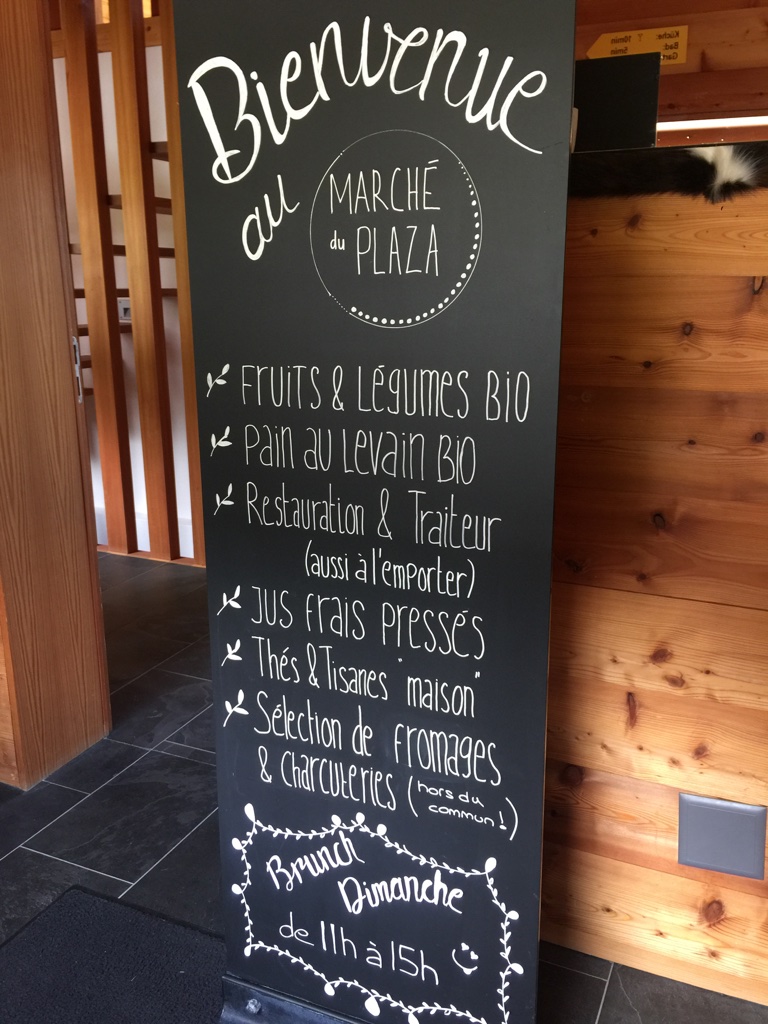 Bienvenue
au
MARCHÉ
du PLAZA
FRUITS & LÉGUMES BIO
PAIN AU LEVAIN BIO
Restauration & Traiteur
(aussi à l'emporter)
JUS FRAIS PRESSÉS
Thés & Tisanes "maison"
Sélection de fromages
& charcuteries (hors du
commun!)
Brunch
Dimanche
de 11h à 15h
Küche: 10min
Bad: 5min